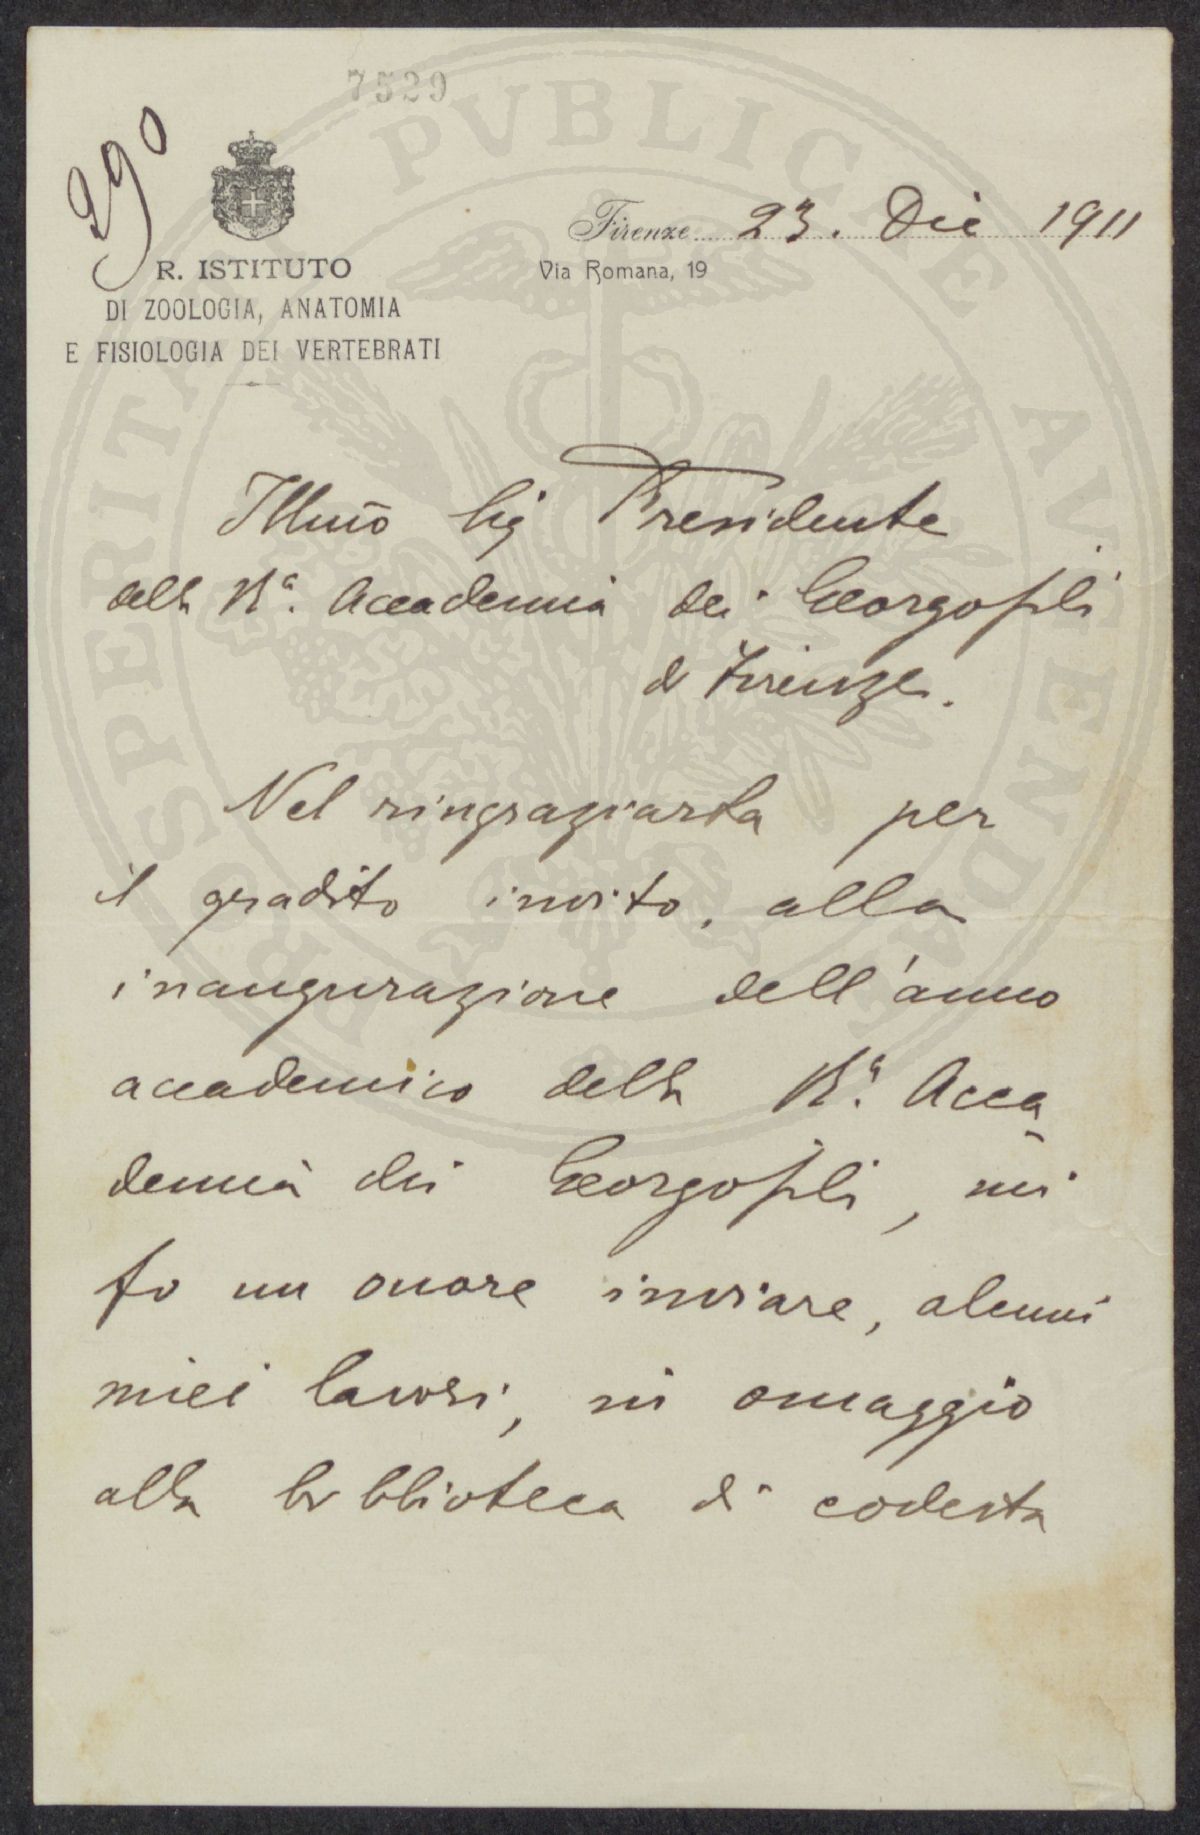 7529
290
R. ISTITUTO
DI ZOOLOGIA, ANATOMIA
E FISIOLOGIA DEI VERTEBRATI
Firenze 23. Dic 1911
Via Romana, 19
Illmo Sig Presidente
della Ra. Accademia dei Georgofili
di Firenze.
Nel ringraziarla per
il gradito invito, alla
inaugurazione dell'anno
accademico della Ra. Acca
demia dei Georgofili, mi
fo un onore inviare, alcuni
miei lavori, in omaggio
alla biblioteca di codesta
PROSPERITATI PVBLICAE AVGENDAE